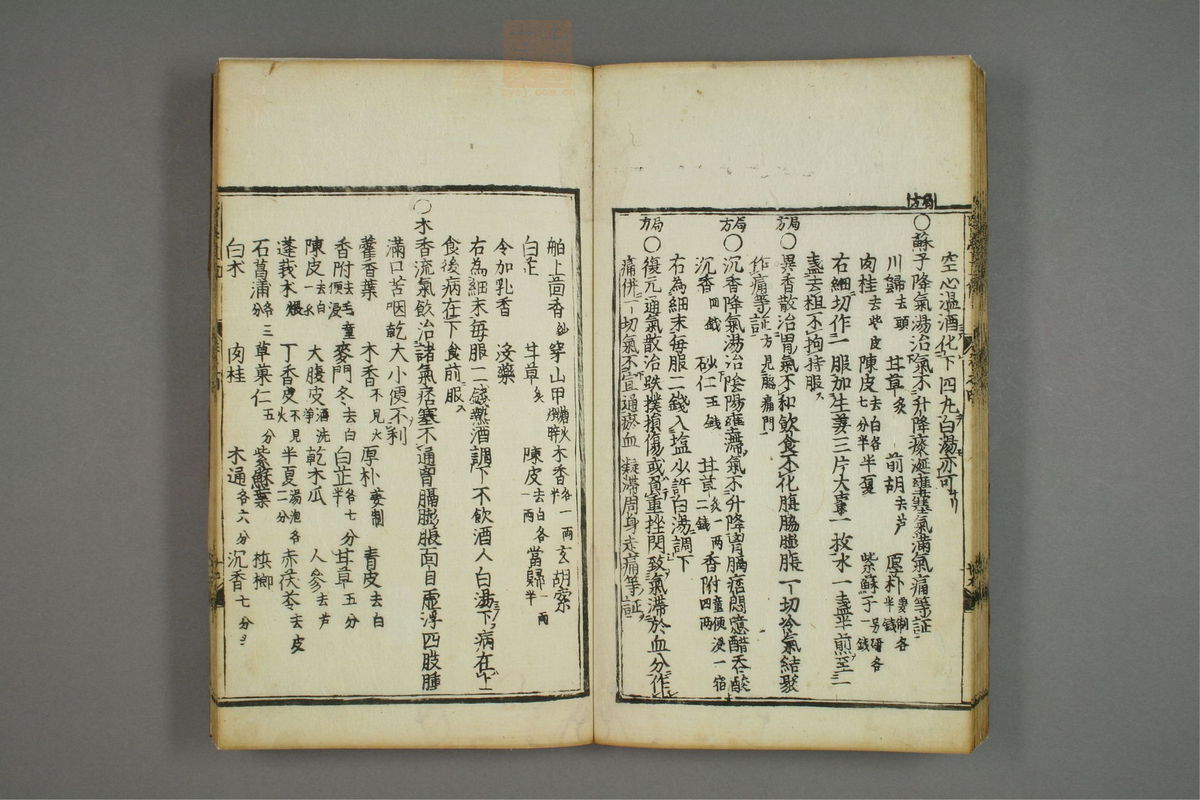 空心温酒化下四丸白湯亦可
局方
○蘇子降氣湯治氣不升降痰涎壅塞氣滿氣痛等証
川歸去頭 甘草炙 前胡去芦 厚朴姜制各半錢
肉桂去皮 陳皮去白各七分半 半夏 紫蘇子另研各一錢
右細切作一服加生姜三片大棗一枚水一盞半煎至一
盞去柤不拘持服
局方
○異香散治胃氣不和飲食不化腹脇膨脹一切冷氣結聚
作痛等証方見腦痛門
局方
○沉香降氣湯治陰陽壅滯氣不升降胃膈痞悶噫醋吞酸
沉香四錢 砂仁五錢 甘草二錢炙一兩 香附四兩童便浸一宿
右為細末每服二錢入塩少許白湯調下
局方
○復元通氣散治跌撲損傷或負重挫閃致氣滯於血分作
痛併一切氣不宣通瘀血凝滯周身走痛等証
舶上茴香炒 穿山甲煻火煨胖 木香各一兩半 玄胡索
白芷 甘草炙 陳皮去白各一兩 當歸一兩半
今加乳香 没藥
右為細末每服二錢熱酒調下不飲酒人白湯下病在上
食後病在下食前服
○木香流氣飲治諸氣痞塞不通胃膈膨脹面目虛浮四肢腫
滿口苦咽乾大小便不利
藿香葉 木香不見火 厚朴姜制 青皮去白
香附去毛童便浸 麥門冬去白 白芷各七分半 甘草五分
陳皮去白一錢 大腹皮酒洗淨 乾木瓜 人參去芦
蓬莪朮煨 丁香皮不見火 半夏湯泡各二分 赤茯苓去皮
石菖蒲各三分 草菓仁五分 紫蘇葉 檳榔
白朮 肉桂 木通各六分 沉香七分